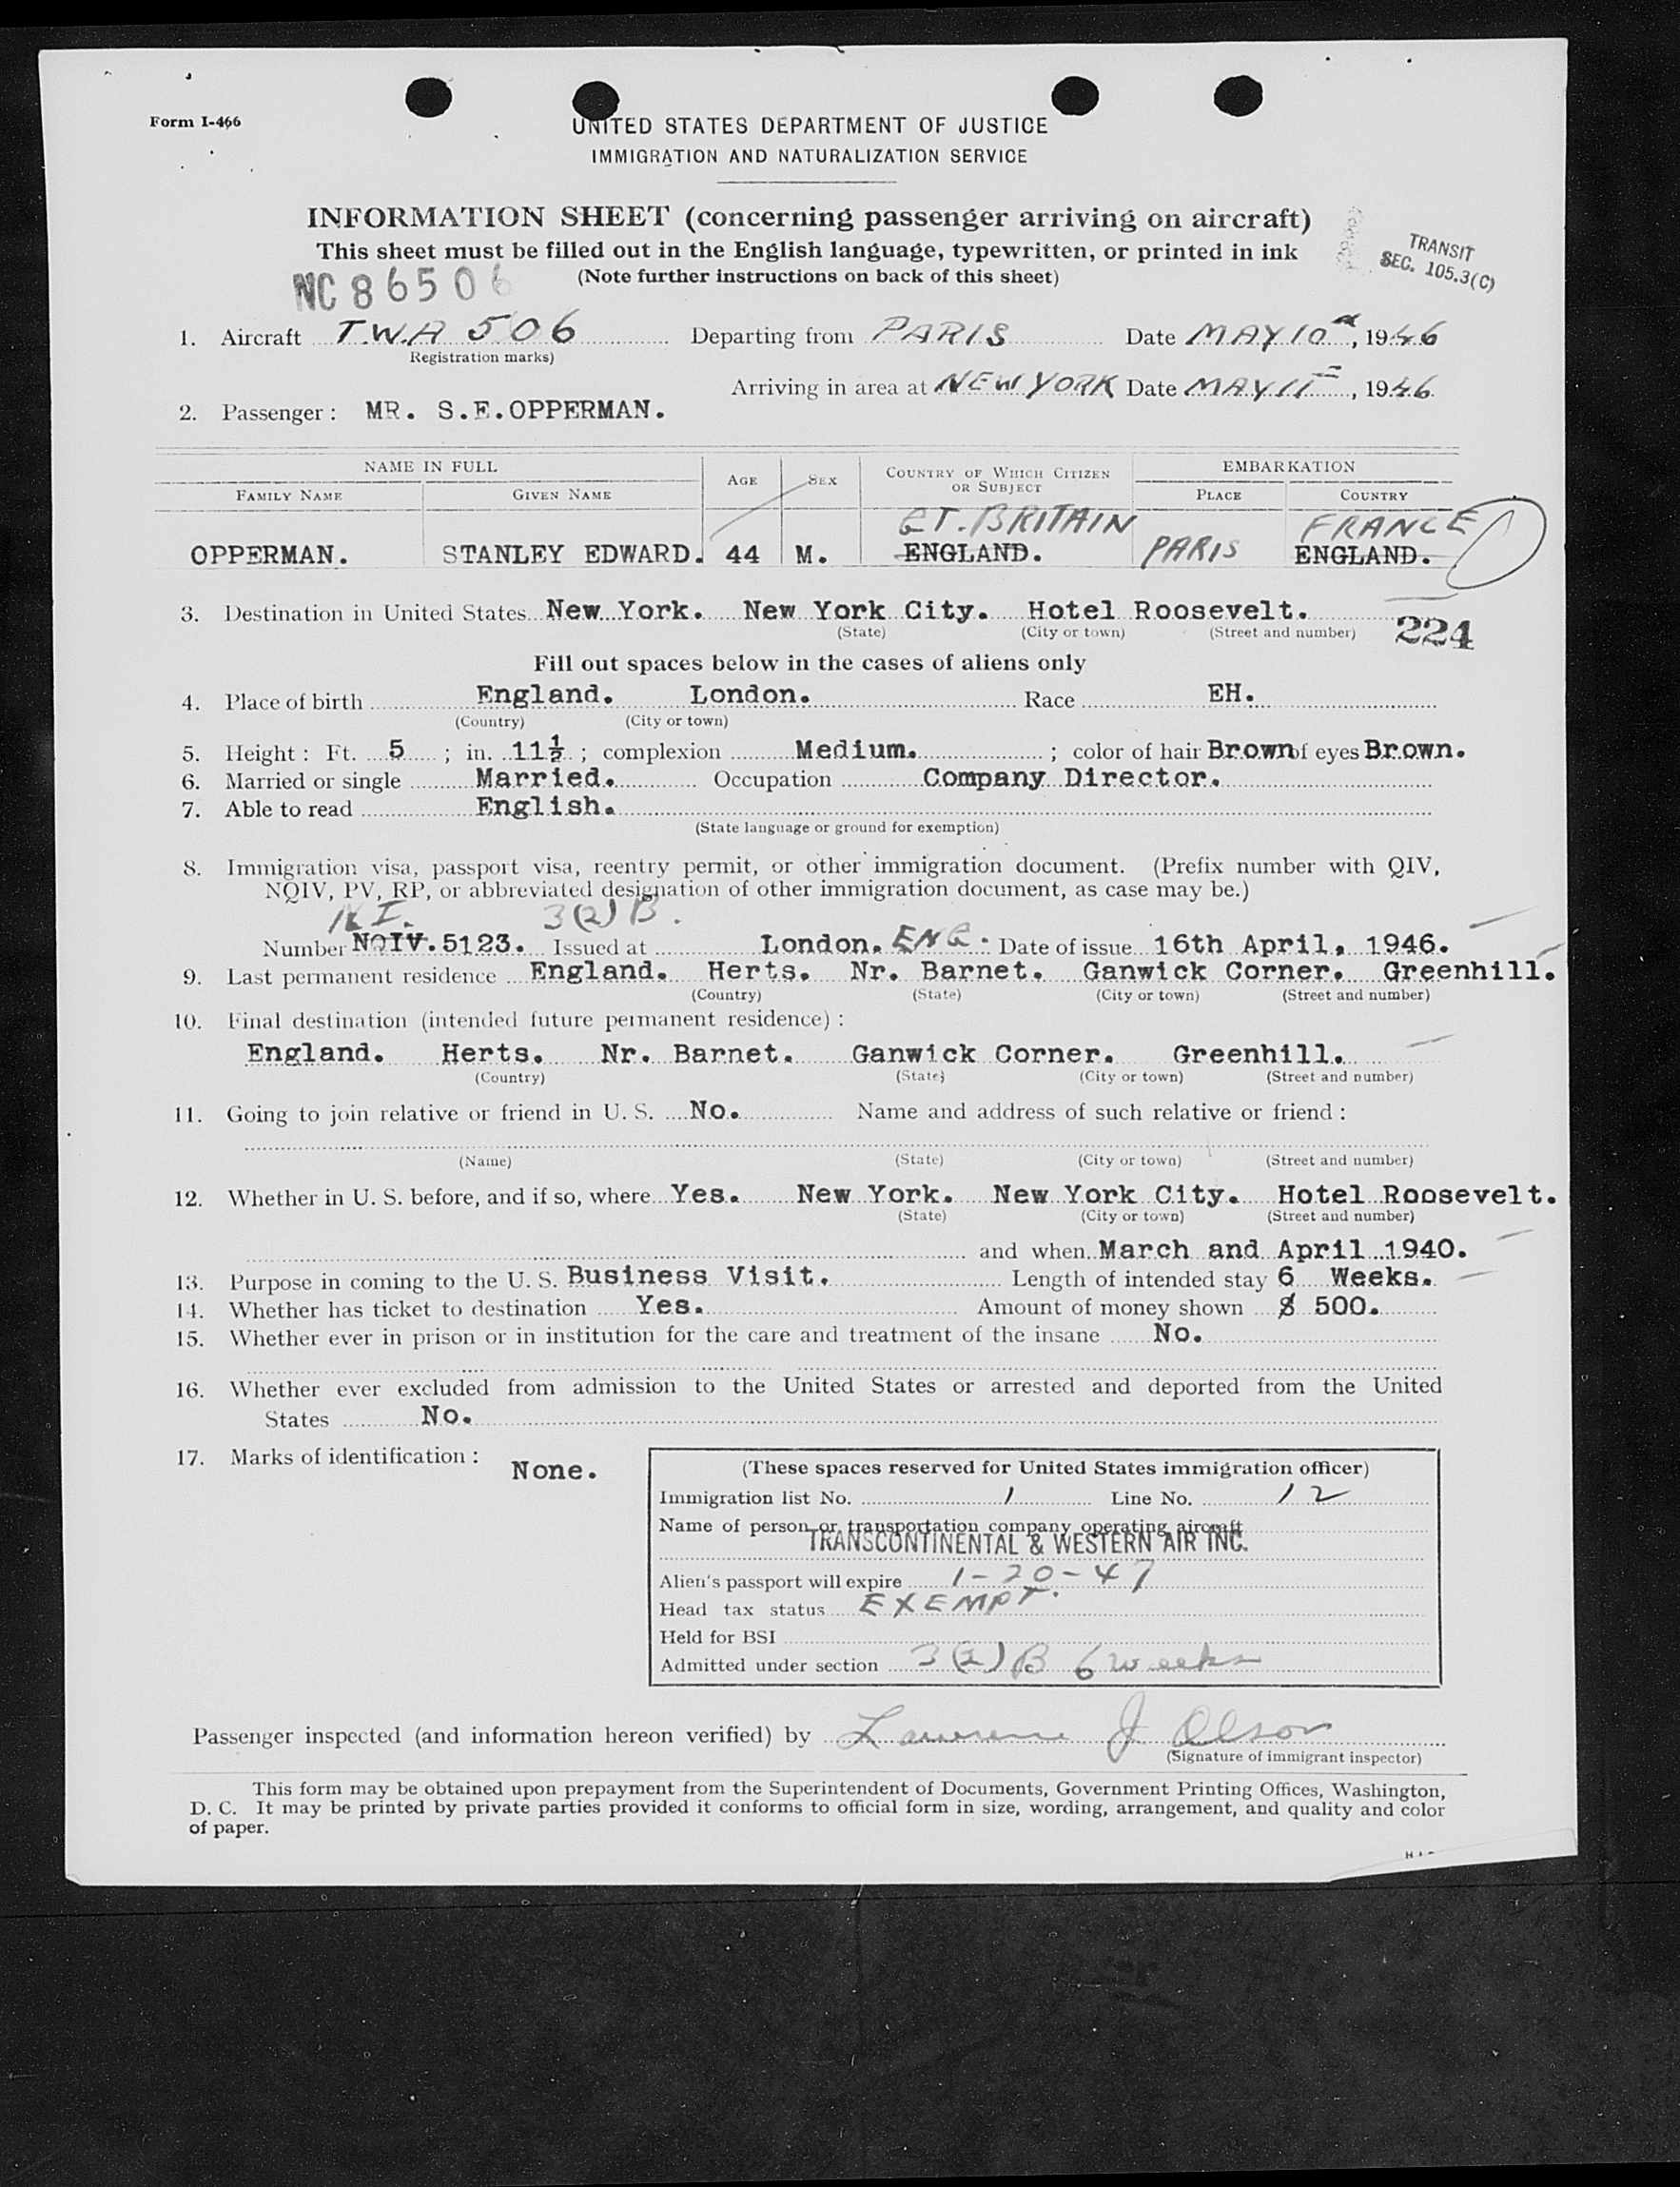 Form I-466
UNITED STATES DEPARTMENT OF JUSTICE
IMMIGRATION AND NATURALIZATION SERVICE
INFORMATION SHEET (concerning passenger arriving on aircraft)
This sheet must be filled out in the English language, typewritten, or printed in ink
(Note further instructions on back of this sheet)
TRANSIT
SEC. 105.3(C)
NC 86506
1. Aircraft T.W.A 506 Departing from PARIS Date MAY 10th, 1946
Registration marks)
Arriving in area at NEW YORK Date MAY 11, 1946
2. Passenger : MR. S.E.OPPERMAN.
NAME IN FULL AGE SEX COUNTRY OF WHICH CITIZEN OR SUBJECT EMBARKATION
FAMILY NAME GIVEN NAME PLACE COUNTRY
GT. BRITAIN FRANCE
OPPERMAN. STANLEY EDWARD. 44 M. ENGLAND. PARIS ENGLAND.
3. Destination in United States New York. New York City. Hotel Roosevelt.
(State) (City or town) (Street and number)
224
Fill out spaces below in the cases of aliens only
4. Place of birth England. London. Race EH.
(Country) (City or town)
5. Height : Ft. 5 ; in. 11½ ; complexion Medium. ; color of hair Brown of eyes Brown.
6. Married or single Married. Occupation Company Director.
7. Able to read English.
(State language or ground for exemption)
8. Immigration visa, passport visa, reentry permit, or other immigration document. (Prefix number with QIV,
NQIV, PV, RP, or abbreviated designation of other immigration document, as case may be.)
3(2)B.
Number NQIV.5123. Issued at London. ENG. Date of issue 16th April, 1946.
9. Last permanent residence England. Herts. Nr. Barnet. Ganwick Corner. Greenhill.
(Country) (State) (City or town) (Street and number)
10. Final destination (intended future permanent residence) :
England. Herts. Nr. Barnet. Ganwick Corner. Greenhill.
(Country) (State) (City or town) (Street and number)
11. Going to join relative or friend in U. S. No. Name and address of such relative or friend :
(Name) (State) (City or town) (Street and number)
12. Whether in U. S. before, and if so, where Yes. New York. New York City. Hotel Roosevelt.
(State) (City or town) (Street and number)
and when March and April 1940.
13. Purpose in coming to the U. S. Business Visit. Length of intended stay 6 Weeks.
14. Whether has ticket to destination Yes. Amount of money shown $ 500.
15. Whether ever in prison or in institution for the care and treatment of the insane No.
16. Whether ever excluded from admission to the United States or arrested and deported from the United
States No.
17. Marks of identification : None.
(These spaces reserved for United States immigration officer)
Immigration list No. 1 Line No. 12
Name of person or transportation company operating aircraft
TRANSCONTINENTAL & WESTERN AIR INC.
Alien's passport will expire 1-20-47
Head tax status EXEMPT.
Held for BSI
Admitted under section 3(2)B 6 weeks
Passenger inspected (and information hereon verified) by Lawrence J Olson
(Signature of immigrant inspector)
This form may be obtained upon prepayment from the Superintendent of Documents, Government Printing Offices, Washington,
D. C. It may be printed by private parties provided it conforms to official form in size, wording, arrangement, and quality and color
of paper.